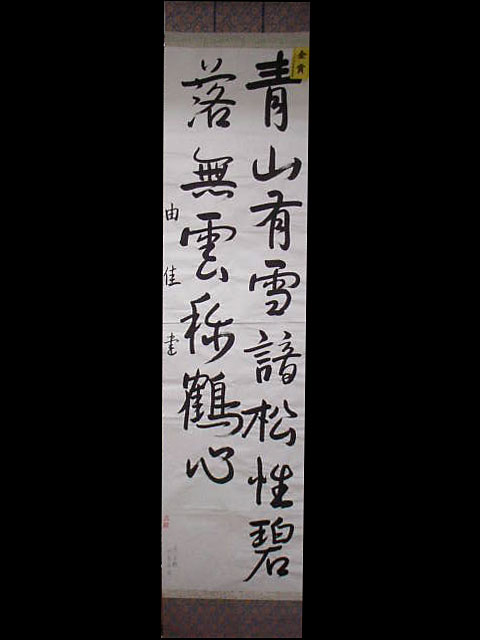 青山有雪諳松性碧
落無雲称鶴心
由佳書
金賞